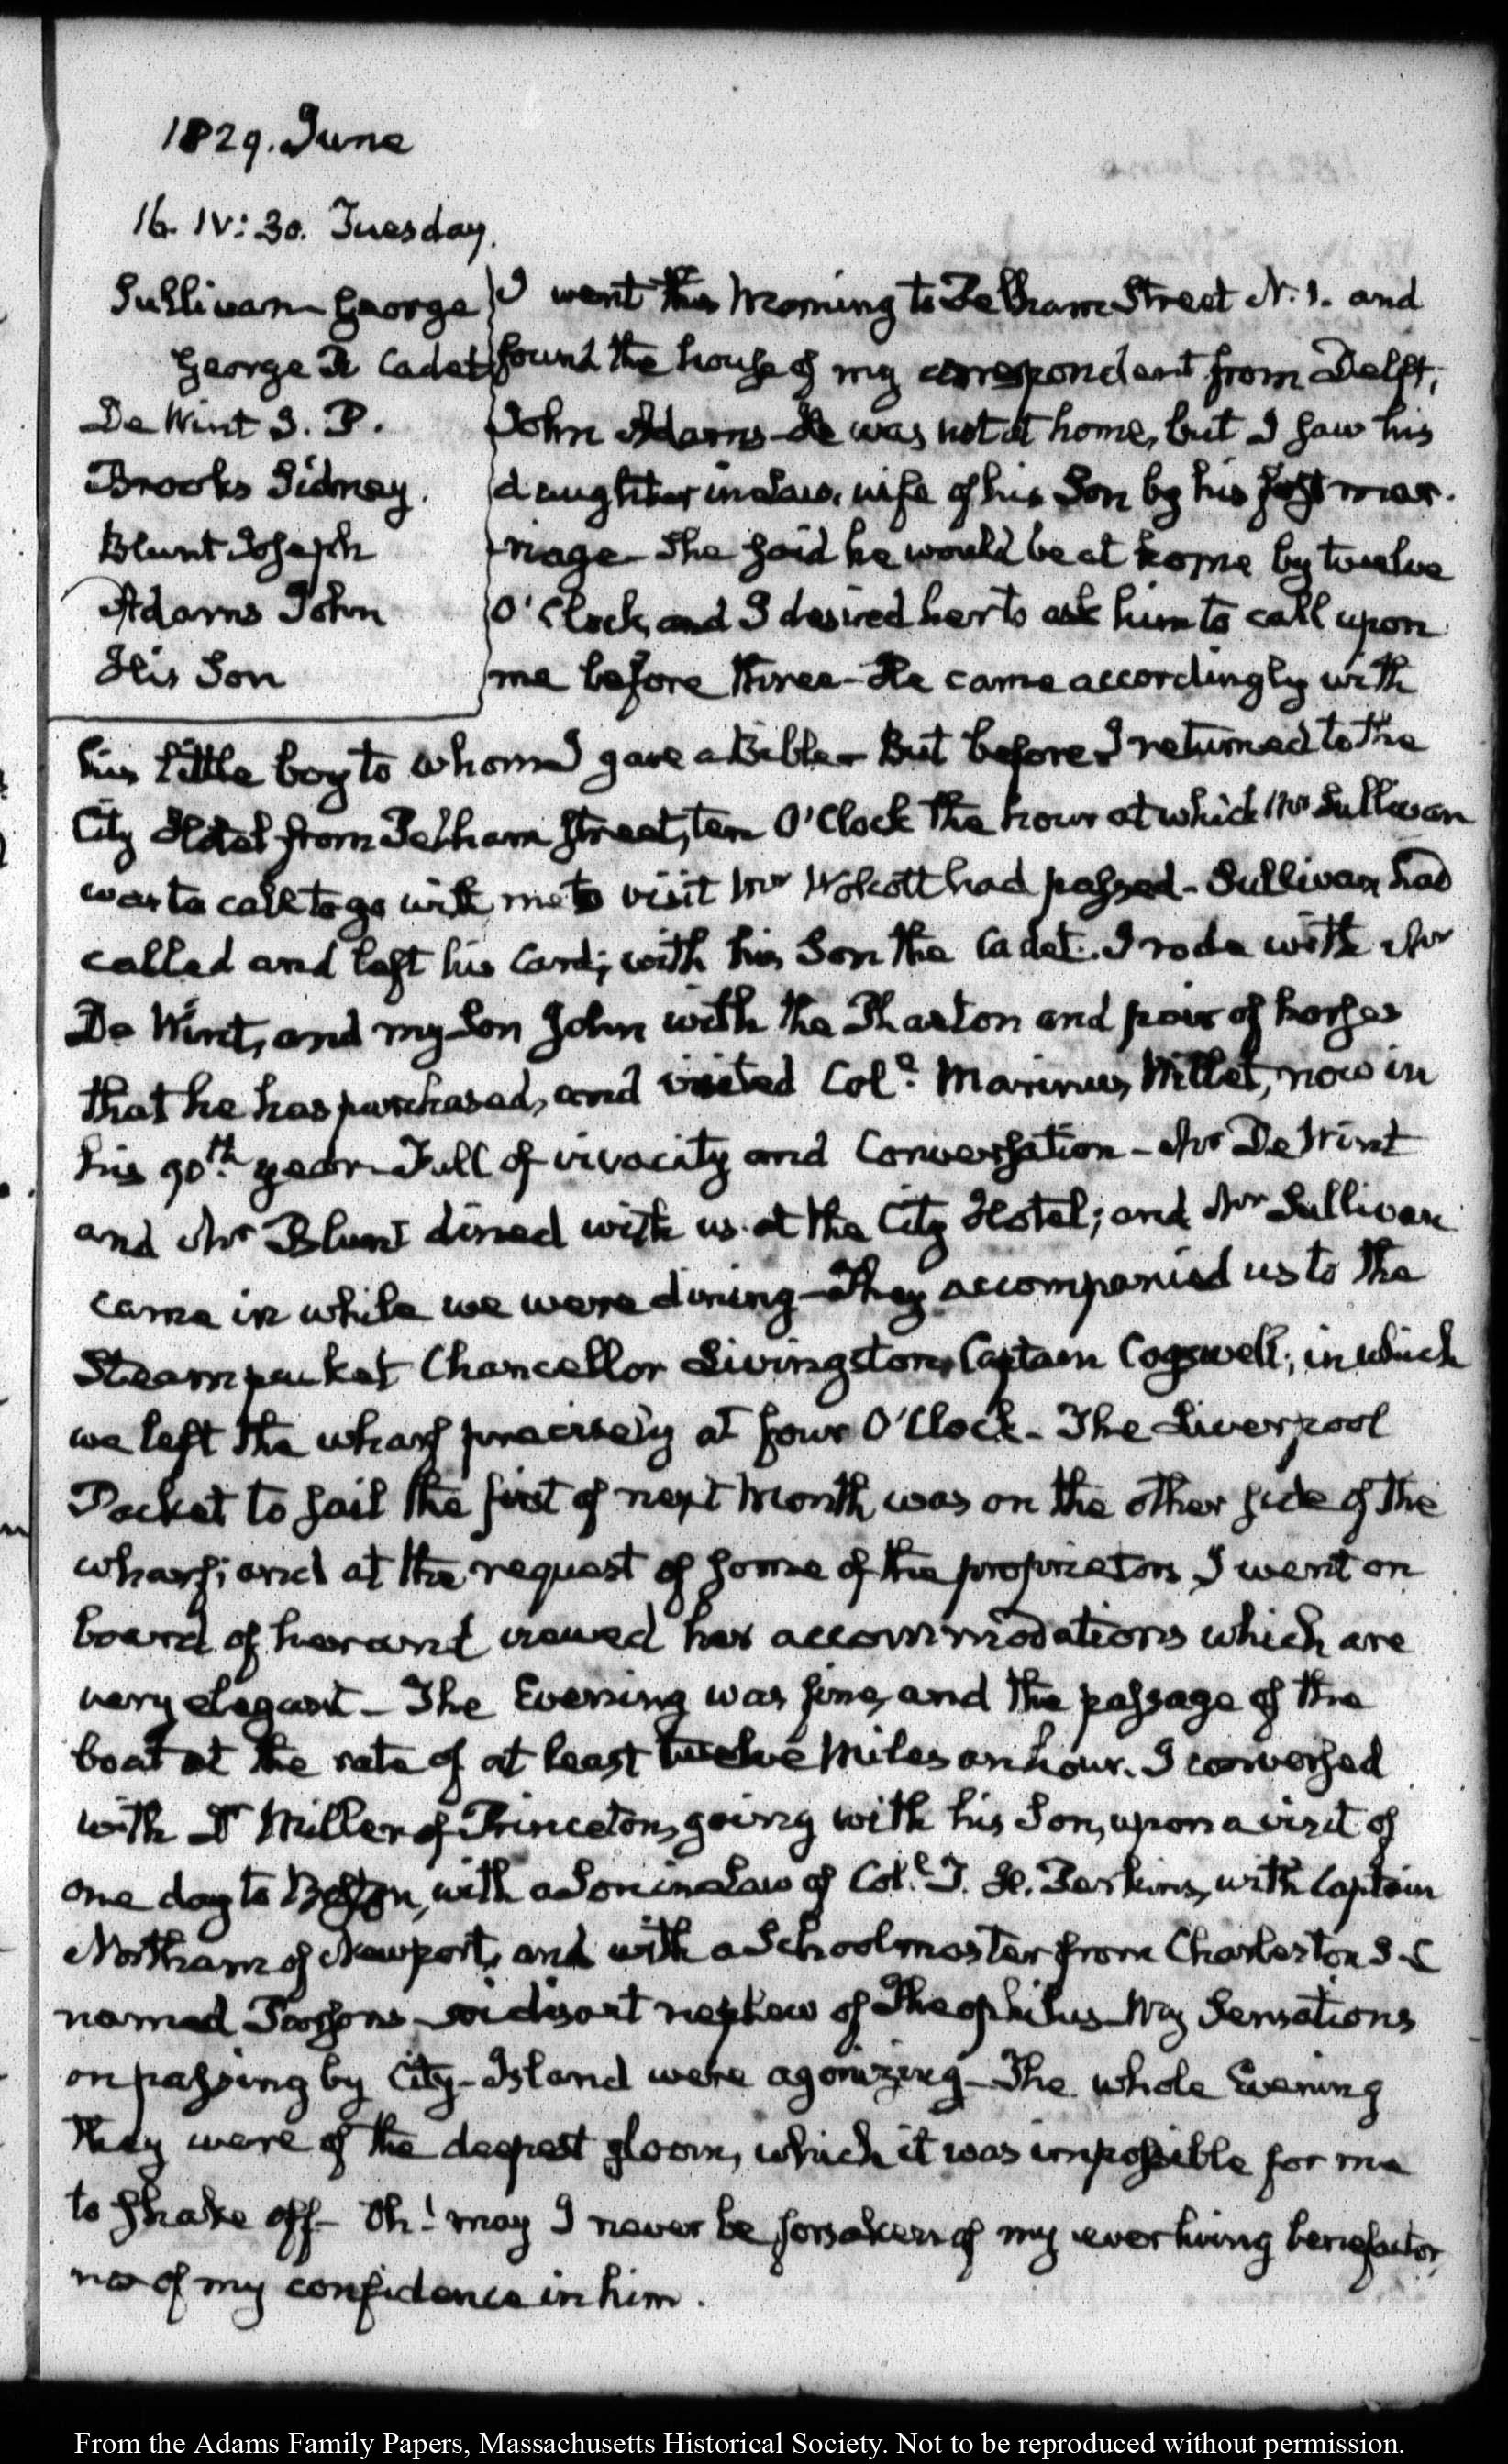 1829. June
16. IV: 30. Tuesday.
Sullivan George
George Jr Cadet
De Wint J. P.
Brooks Sidney.
Blunt Joseph
Adams John
His Son
I went this Morning to Pelham Street N. 1. and
found the house of my correspondent from Delft,
John Adams - He was not at home, but I saw his
daughter in Law, wife of his Son by his first mar-
riage - She said he would be at home by twelve
O'Clock, and I desired her to ask him to call upon
me before three - He came accordingly with
his little boy to whom I gave a Bible - But before I returned to the
City Hotel from Pelham Street, ten O'Clock the hour at which Mr Sullivan
was to call to go with me to visit Mr Wolcott had passed - Sullivan had
called and left his Card; with his Son the Cadet. I rode with Mr
De Wint, and my Son John with the Phaeton and pair of horses
that he has purchased, and visited Coll. Marinus Willet, now in
his 90th. year - Full of vivacity and Conversation - Mr De Wint
and Mr Blunt dined with us at the City Hotel; and Mr Sullivan
came in while we were dining - They accompanied us to the
Steam packet Chancellor Livingston, Captain Cogswell; in which
we left the wharf precisely at four O'Clock - The Liverpool
Packet to sail the first of next Month was on the other side of the
wharf; and at the request of some of the proprietors I went on
board of her and viewed her accommodations which are
very elegant - The Evening was fine, and the passage of the
boat at the rate of at least twelve Miles an hour. I conversed
with Dr Miller of Princeton, going with his Son, upon a visit of
one day to Boston, with a Son in Law of Coll. T. H. Perkins, with Captain
Northam of Newport, and with a Schoolmaster from Charleston S-C
named Parsons - soi disant nephew of Theophilus - My Sensations
on passing by City-Island were agonizing - The whole Evening
they were of the deepest gloom, which it was impossible for me
to shake off - Oh! may I never be forsaken of my ever living benefactor,
nor of my confidence in him.
From the Adams Family Papers, Massachusetts Historical Society. Not to be reproduced without permission.